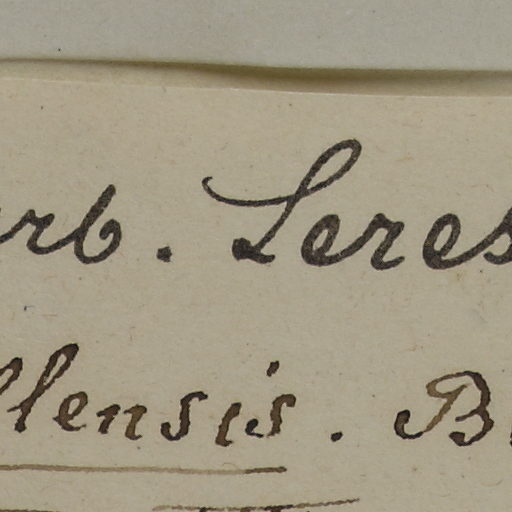 rb. Leres
llensis. B